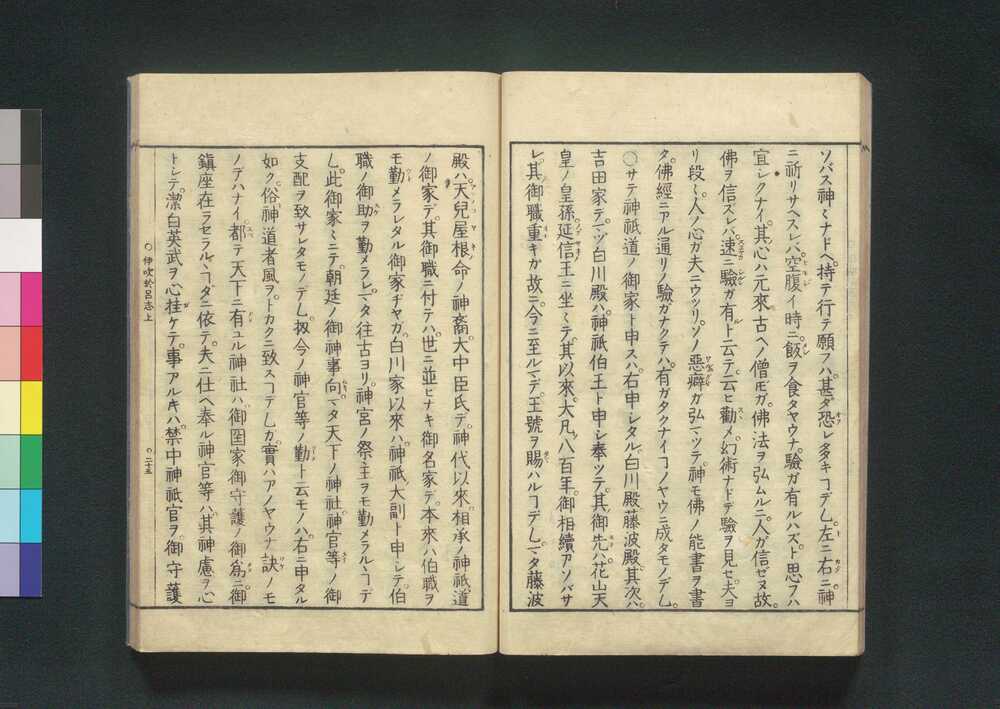 ソバス神〻ナドヘ持テ行テ願フハ甚ダ恐レ多キヿデム左ニ右ニ神
ニ祈リサヘスレバ空腹イ時ニ飯ヲ食タヤウナ驗ガ有ルハズト思フハ
宜シクナイ其心ハ元來古ヘノ僧𪜈ガ佛法ヲ弘ムルニ人ガ信ゼヌ故
佛ヲ信スレバ速ニ驗ガ有ト云テ云ヒ勸メ幻術ナドデ驗ヲ見セ夫ヨ
リ段〻人ノ心ガ夫ニウツリソノ惡癖ガ弘マツテ神モ佛ノ能書ヲ書
タ佛經ニアル通リノ驗ガナクテハ有ガタクナイヿノヤウニ成タモノデム
○サテ神祇道ノ御家ト申スハ右申シタル白川殿藤波殿其次ハ
吉田家デマヅ白川殿ハ神祇伯王ト申シ奉ツテ其御先ハ花山天
皇ノ皇孫延信王ニ坐〻テ其以來大凡八百年御相續アソバサ
レ其御職重キガ故ニ今ニ至ルマデ王號ヲ賜ハルヿデムマタ藤波
殿ハ天兒屋根命ノ神裔大中臣氏デ神代以來相承ノ神祇道
ノ御家デ其御職ニ付テハ世ニ並ビナキ御名家デ本來ハ伯職ヲ
モ勤メラレタル御家ヂヤガ白川家以來ハ神祇大副ト申シテ伯
職ノ御助ヲ勤メラレマタ往古ヨリ神宮ノ祭主ヲモ勤メラルヽヿデ
ム此御家〻ニテ朝廷ノ御神事向マタ天下ノ神社神官等ノ御
支配ヲ致サレタモノデム扨今ノ神官等ノ勤ト云モノハ右ニ申タル
如ク俗神道者風ヲトカクニ致スヿデムガ實ハアノヤウナ訣ノモ
ノデハナイ都テ天下ニ有ユル神社ハ御國家御守護ノ御爲ニ御
鎭座在ラセラルヽヿダニ依テ夫ニ仕ヘ奉ル神官等ハ其神慮ヲ心
トシテ潔白英武ヲ心挂ケテ事アルキハ禁中神祇官ヲ御守護
○伊吹於呂志上
○二十五